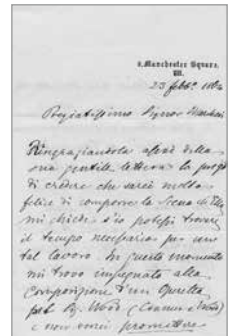 6, Manchester Square,
W.
23 febb.
Pregiatissimo Signor Marchesi
Ringraziandola assai della
sua gentile lettera la prego
di credere che sarei molto
felice di comporre la Scena
mi chiede s'io potessi trovare
il tempo necessario per uno
tal lavoro. In questo momento
mi trovo impegnato alla
Composizione d'un Operetta
pel Sg. Wood (Cramer &
e non vorrei promettere